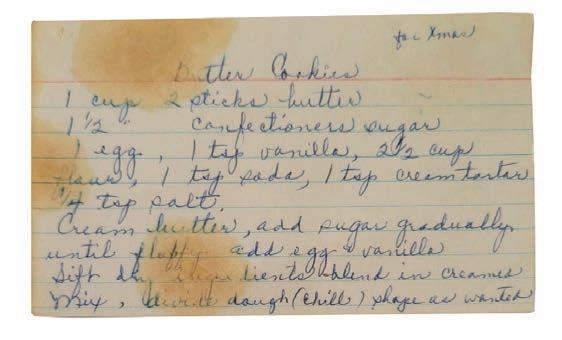 for Xmas
Butter Cookies
1 cup 2 sticks butter
1 1/2 " confectioners sugar
1 egg, 1 tsp vanilla, 2 1/2 cup
flour, 1 tsp soda, 1 tsp cream tartar
1/4 tsp salt.
Cream butter, add sugar gradually
until fluffy add egg & vanilla
Sift dry ingredients blend in creamed
mix, divide dough (chill) shape as wanted